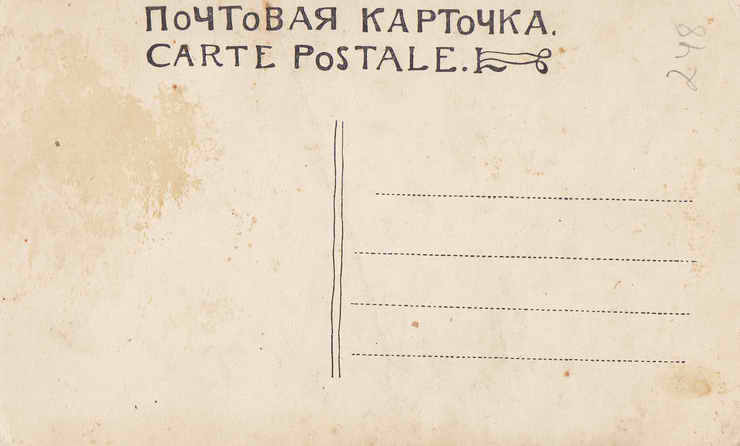 ПОЧТОВАЯ КАРТОЧКА.
CARTE POSTALE.
248